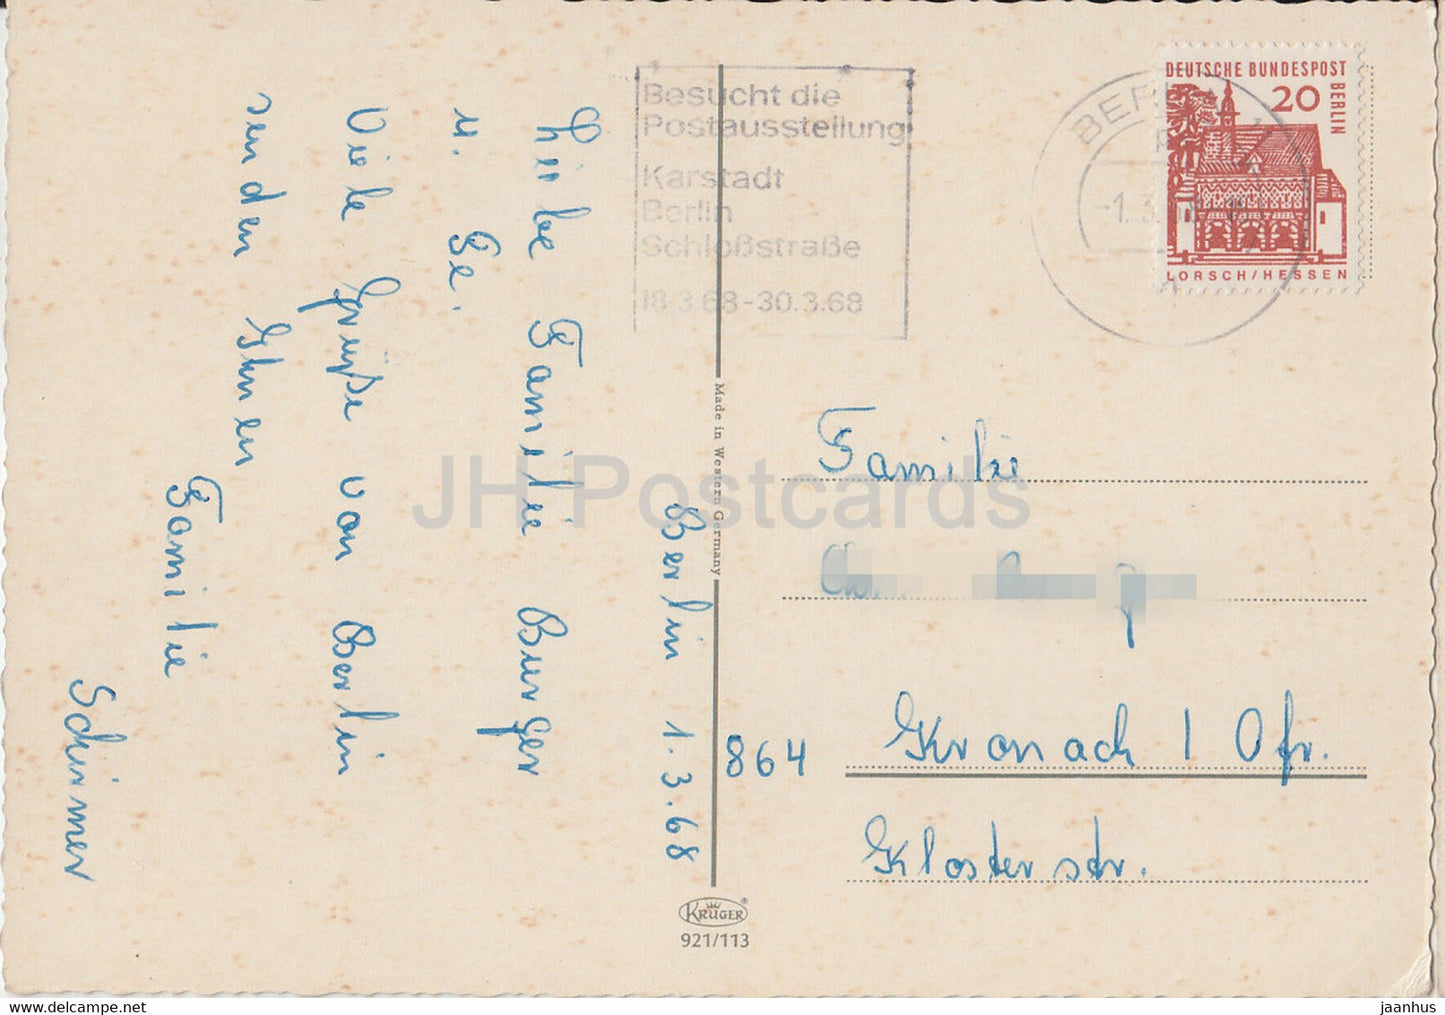 Berlin 1.3.68
Liebe Familie Burger
u. Ge.
Viele Grüße von Berlin
senden Ihnen
Familie
Schirmer
Besucht die
Postausstellung
Karstadt
Berlin
Schloßstraße
18.3.68-30.3.68
BERLIN
-1.3.68
DEUTSCHE BUNDESPOST
BERLIN
20
LORSCH/HESSEN
Made in Western Germany
Familie
864 Kronach 1 Ofr.
Klosterstr.
KRÜGER
921/113
JH Postcards
https://www.ebay.com
jaanhus